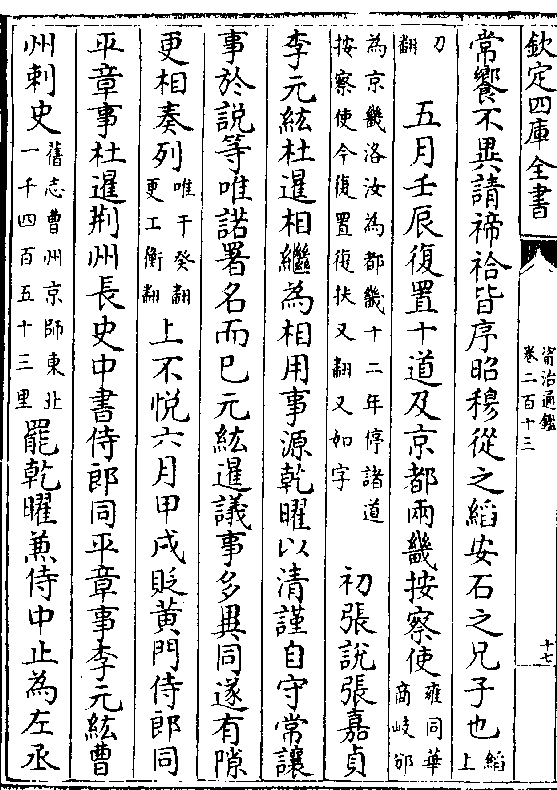 欽定四庫全書
資治通鑑
卷二百十三
十七
常饗不異請禘祫皆序昭穆從之縚安石之兄子也縚上
刀翻 五月壬辰復置十道及京都兩畿按察使雍同華商岐邠
為京畿洛汝為都畿十二年停諸道按察使今復置復扶又翻又如字 初張說張嘉貞
李元紘杜暹相繼為相用事源乾曜以清謹自守常讓
事於說等唯諾署名而已元紘暹議事多異同遂有隙
更相奏列唯于癸翻更工衡翻上不悅六月甲戌貶黃門侍郎同
平章事杜暹荆州長史中書侍郎同平章事李元紘曹
州刺史舊志曹州京師東北一千四百五十三里罷乾曜兼侍中止為左丞